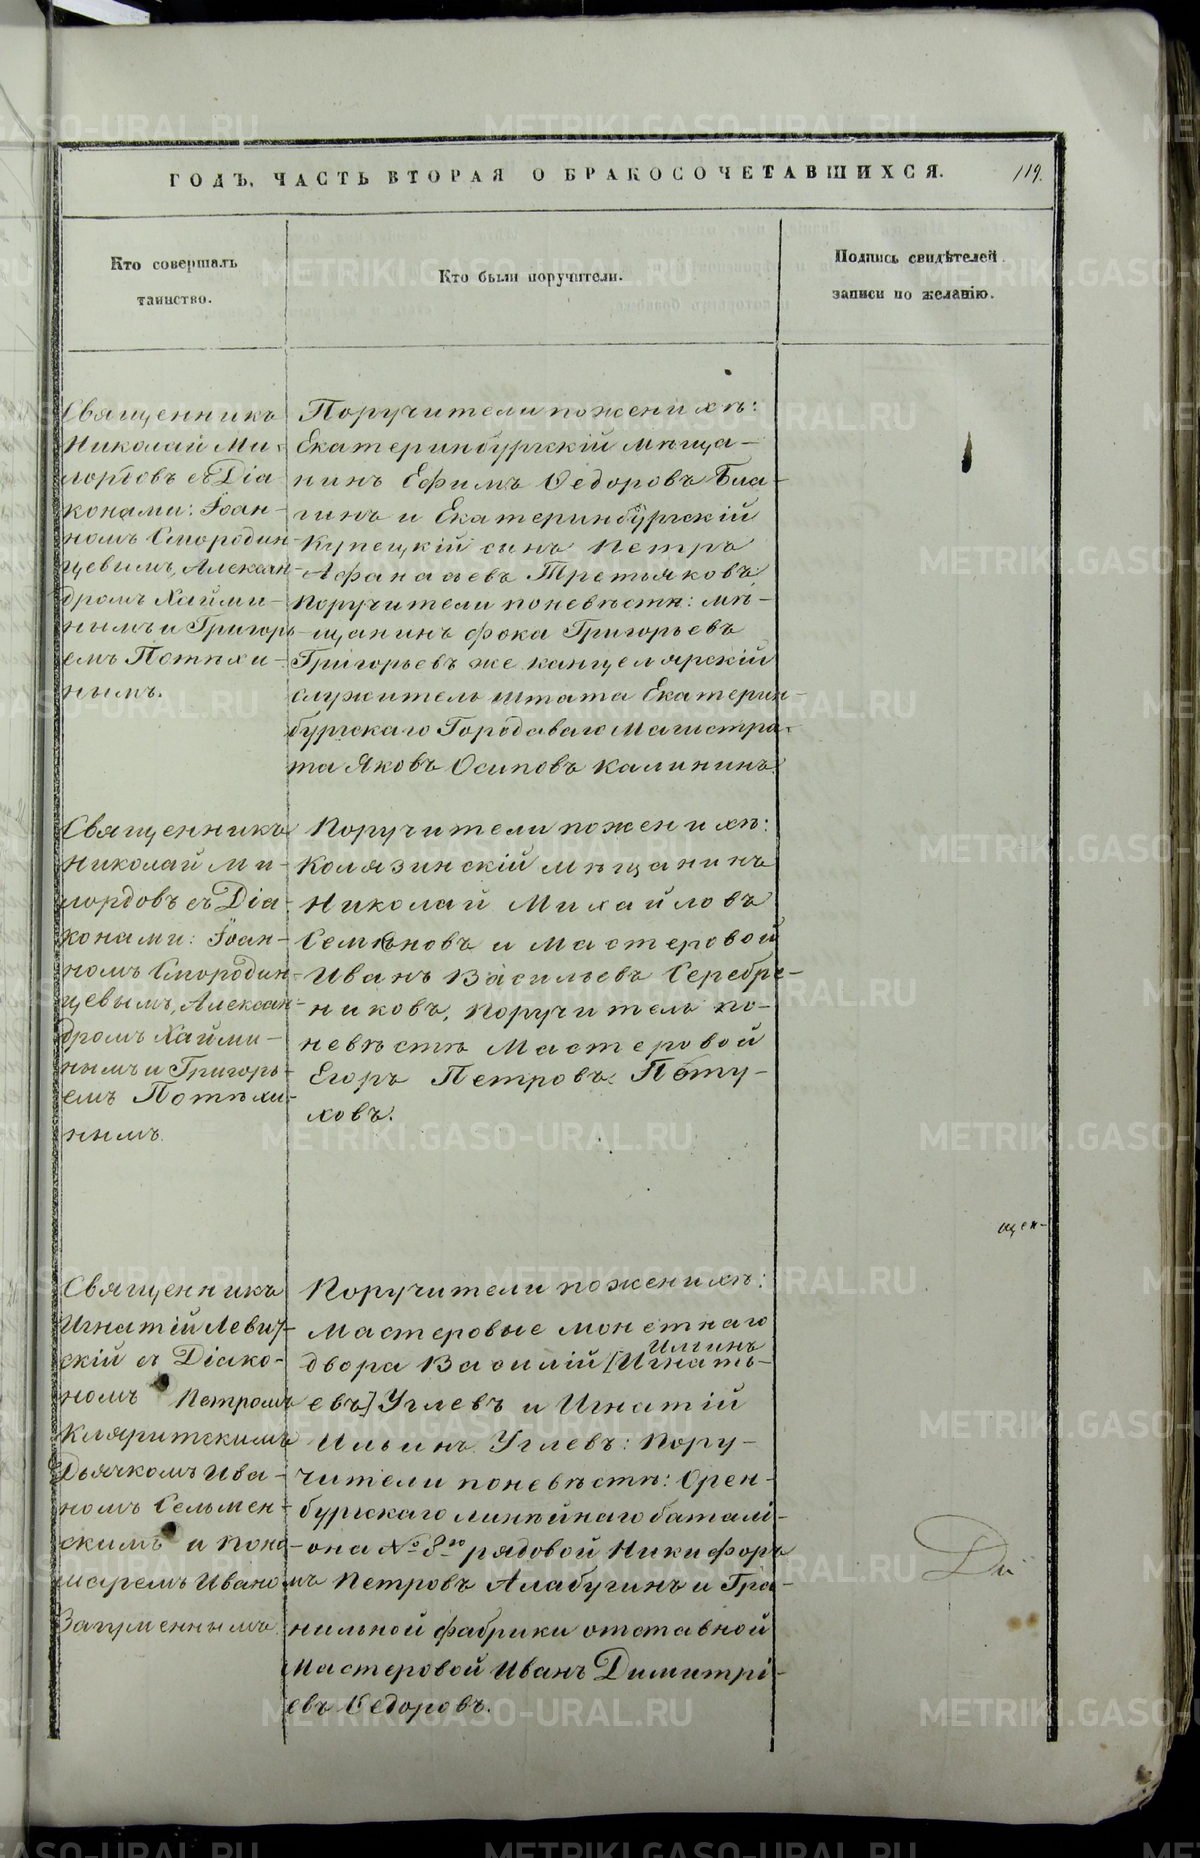 ГОДЪ, ЧАСТЬ ВТОРАЯ О БРАКОСОЧЕТАВШИХСЯ.
119.
Кто совершалъ
таинство.
Кто были поручители.
Подпись свидѣтелей
записи по желанію.
Священникъ
Николай Ми-
лордовъ съ Діа-
конами: Іоан-
номъ Смородин-
цевымъ, Алексан-
дромъ Хайми-
нымъ и Григорь-
емъ Потѣхи-
нымъ.
Поручители по женихѣ:
Екатеринбургскій мѣща-
нинъ Ефимъ Ѳедоровъ Бла-
гинъ и Екатеринбургскій
Купецкій сынъ Петръ
Афанасьевъ Третьяковъ;
поручители по невѣстѣ: мѣ-
щанинъ фока Григорьевъ
Григорьевъ же канцелярскій
служитель штата Екатерин-
бургскаго Городоваго Магистра-
та Яковъ Осиповъ Калининъ.
Священникъ
Николай Ми-
лордовъ съ Діа-
конами: Іоан-
номъ Смородин-
цевымъ, Алексан-
дромъ Хайми-
нымъ и Григорь-
емъ Потѣхи-
нымъ.
Поручители по женихѣ:
Колязинскій мѣщанинъ
Николай Михайловъ
Семеновъ и Мастеровой
Иванъ Васильевъ Серебре-
никовъ, поручитель по-
невѣстѣ Мастеровой
Егоръ Петровъ Пѣту-
ховъ.
щен-
Священникъ
Игнатій Левит-
скій съ Діако-
номъ Петромъ
Кляритскимъ
Дьячкомъ Ива-
номъ Сельмен-
скимъ и поно-
маремъ Иваномъ
Поручители по женихѣ:
Мастеровые монетнаго
Илгинъ
двора Василій [Игнать-
евъ] Углевъ и Игнатій
Ильинъ Углевъ: пору-
чители по невѣстѣ: Орен-
бургскаго линѣйнаго баталі-
она № 8го рядовой Никифоръ
Петровъ Алабугинъ и Гра-
нильной фабрики отставной
Мастеровой Иванъ Димитрі-
евъ Ѳедоровъ.
Ди
METRIKI.GASO-URAL.RU